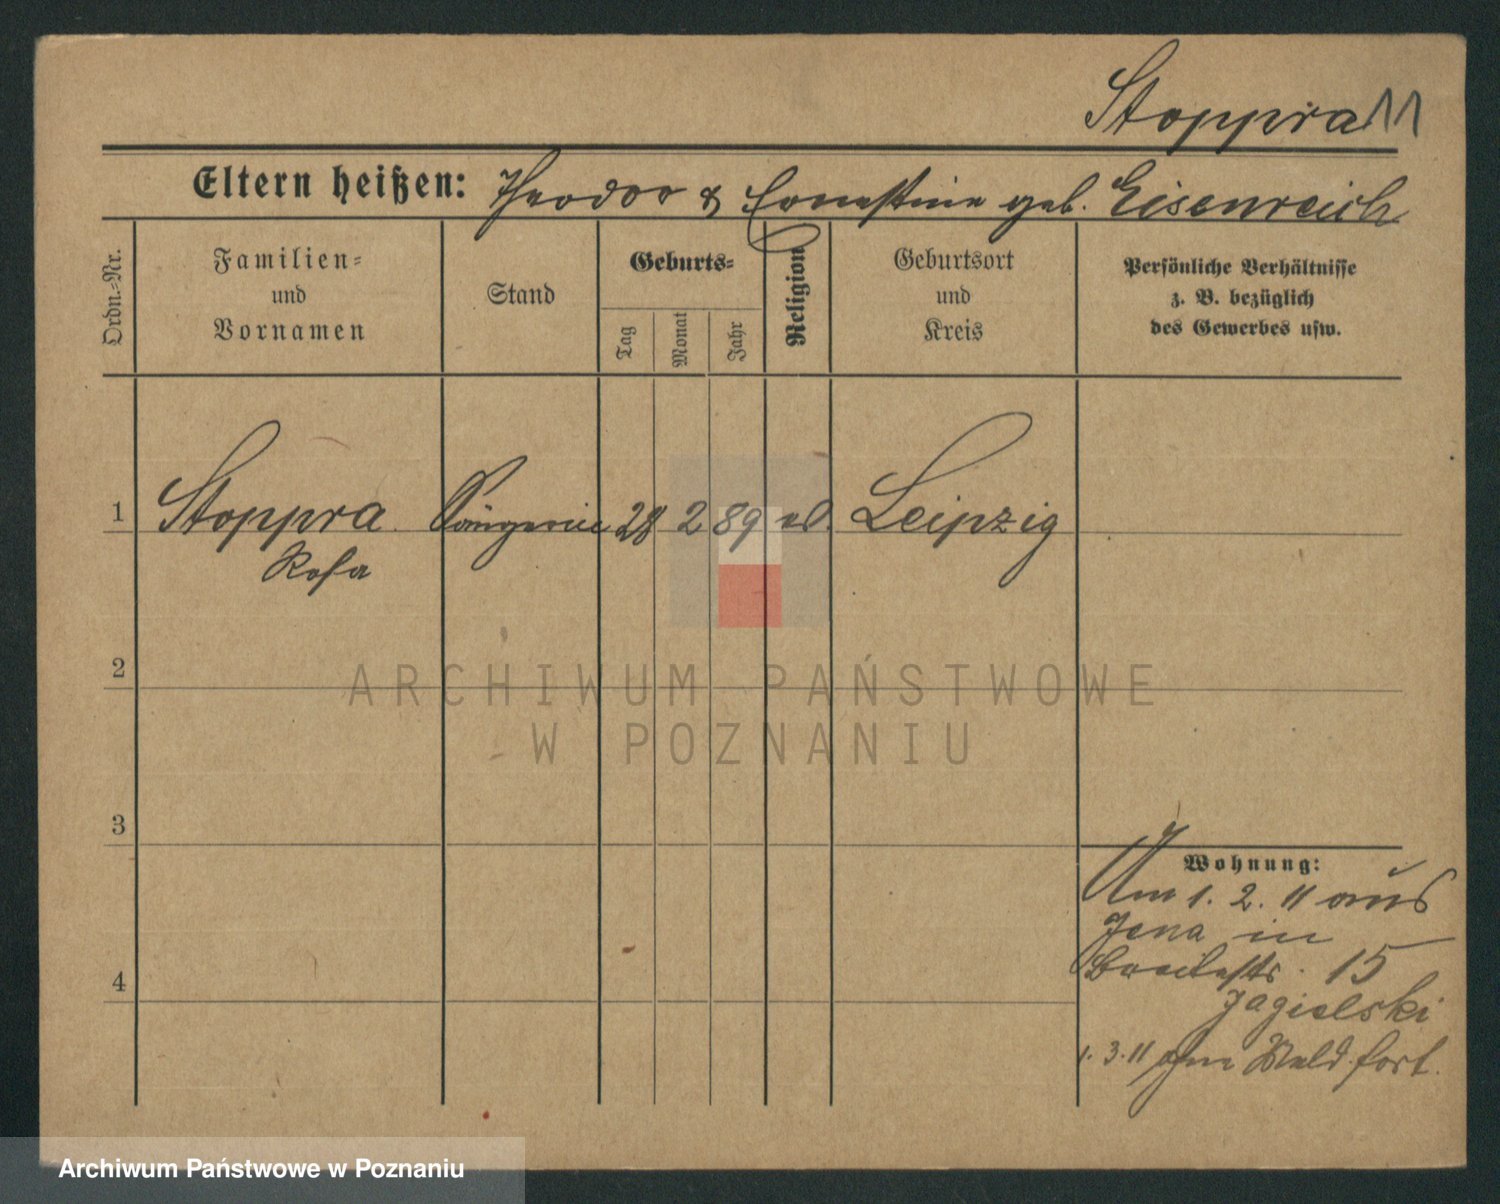 Stoppra 11
Eltern heißen: Theodor & Ernestine geb. Eisenreich
Ordn.-Nr.
Familien-
und
Vornamen
Stand
Geburts-
Tag
Monat
Jahr
Religion
Geburtsort
und
Kreis
Persönliche Verhältnisse
z. B. bezüglich
des Gewerbes usw.
1 Stoppra Sängerin 28 2 89 ev. Leipzig
Rosa
2
3
4
ARCHIWUM PAŃSTWOWE
W POZNANIU
Wohnung:
Am 1. 2. 11 aus
Jena in
Breitestr. 15
Jagielski
1. 3. 11 ohne Meld. fort.
Archiwum Państwowe w Poznaniu